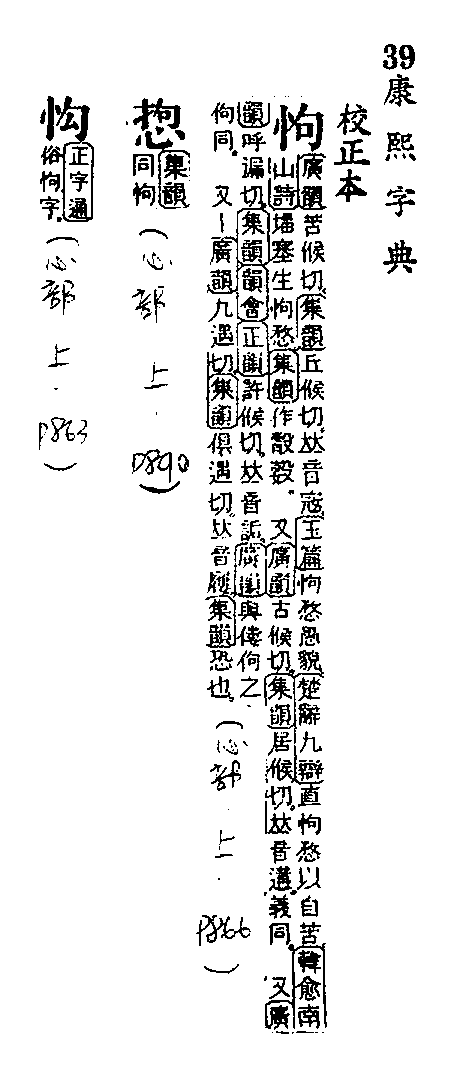 39康熙字典
校正本
怐
廣韻苦候切。集韻丘候切。𠀤音寇。玉篇怐愗愚貌。楚辭九辯直怐愗以自苦。韓愈南
山詩堛塞生怐愗。集韻作 。又廣韻古候切。集韻居候切。𠀤音遘。義同。又廣
韻呼漏切。集韻韻會正韻許候切。𠀤音詬。廣韻與 佝之
佝同。又丨廣韻九遇切。集韻俱遇切。𠀤音屨。集韻恐也。(心部.上.P866)
集韻
同怐(心部 上.P890)
正字通
俗怐字。(心部 上.P863)